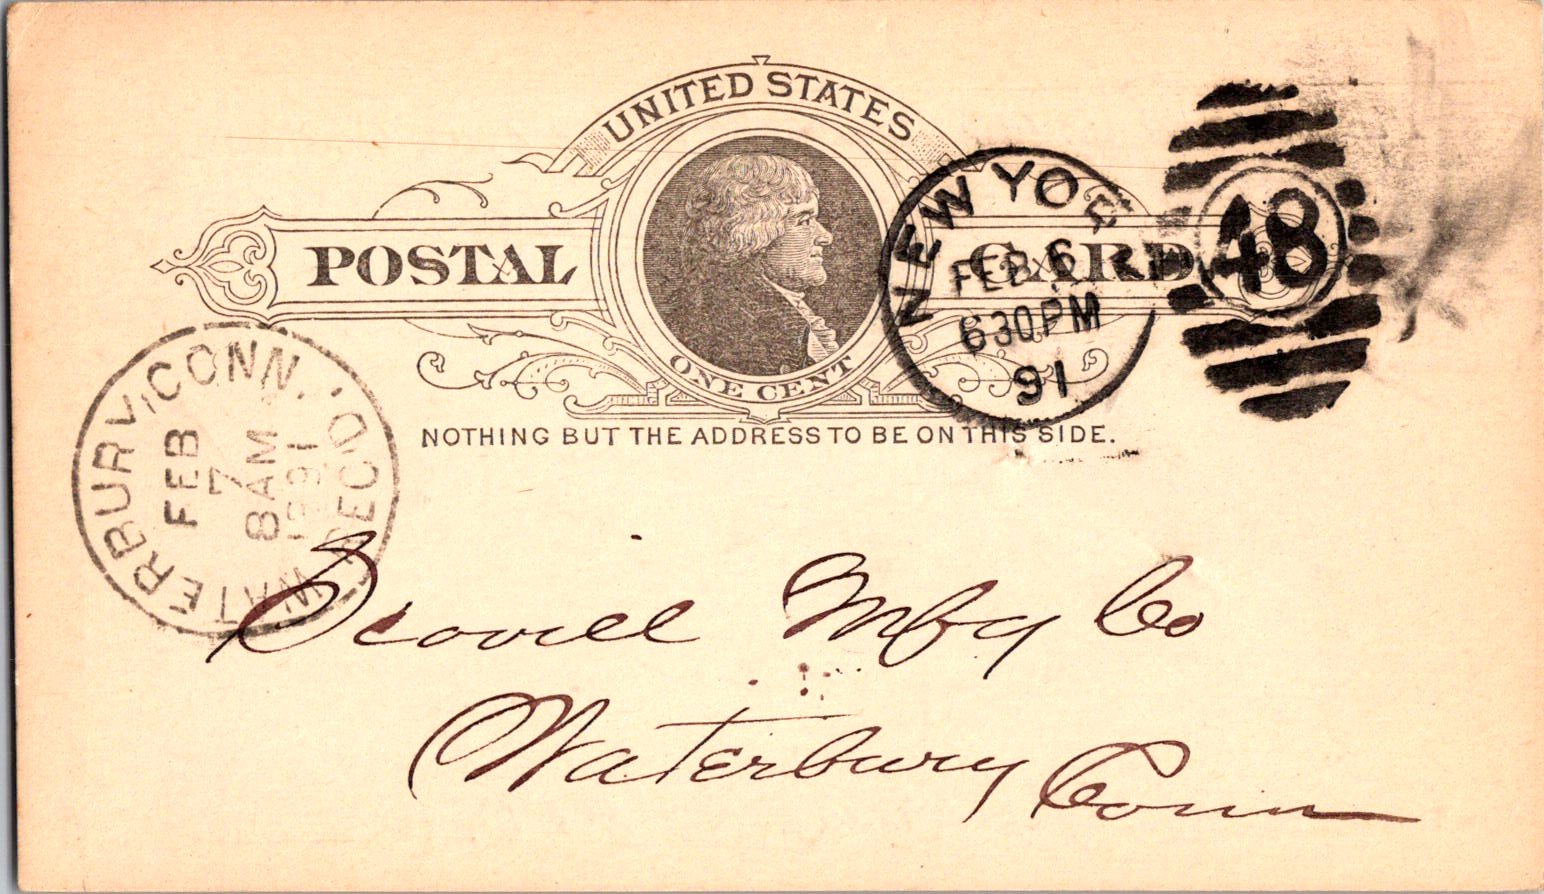 UNITED STATES
POSTAL CARD
ONE CENT
NOTHING BUT THE ADDRESS TO BE ON THIS SIDE.
NEW YOR
FEB 6
630PM
91
48
WATERBURY, CONN. REC'D
FEB
7
8AM
1891
Scovill Mfg Co
Waterbury Conn